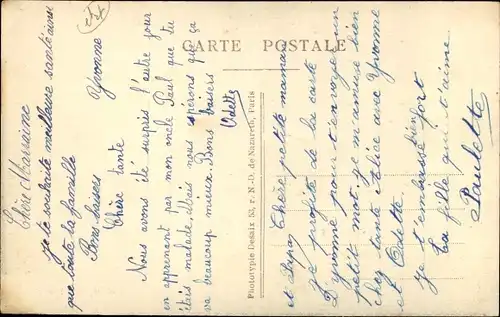 CARTE POSTALE
Chère
je te souhaite meilleure santé ainsi
que toute la famille
Bons baisers Yvonne
Chère tante
Nous avons été surpris l'autre jour
en apprenant par mon oncle Paul que tu
étais malade, nous espérons que ça
va beaucoup mieux. Bons baisers
Odette
Phototypie Desaix 53, r. N.-D. de Nazareth, Paris
Chère petite maman
et Papa
je profite de la carte
D'yvonne pour t'envoyer un
petit mot. je m'amuse bien
chez tante Alice avec Yvonne
et Odette.
je t'embrasse bien fort
Ta fille qui t'aime.
Paulette